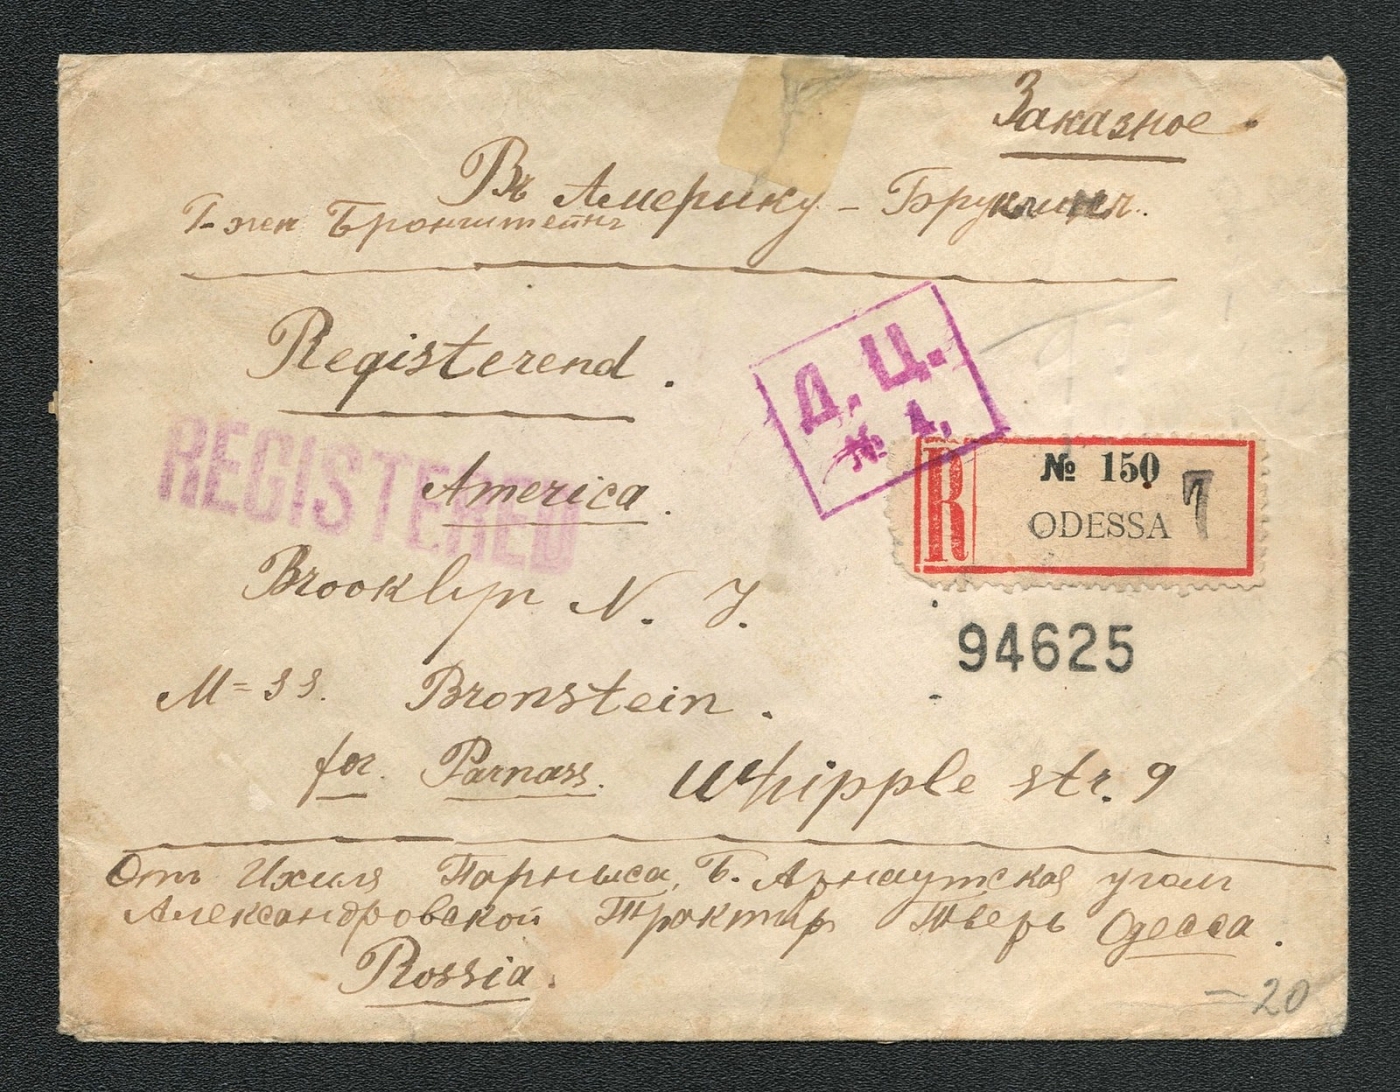 Заказное.
Въ Америку - Бруклинъ.
Г-жен Бронштейнъ
Registerend.
Д. Ц.
№ 4.
REGISTERED
America.
R № 150 7
ODESSA
Brooklyn N. Y.
94625
M=ss. Bronstein.
for. Parnass. Whipple str. 9
Отъ Ихиля Парныса, Б. Арнаутская уголъ
Александровской Трактир Тверь Одесса.
Rossia.
-20